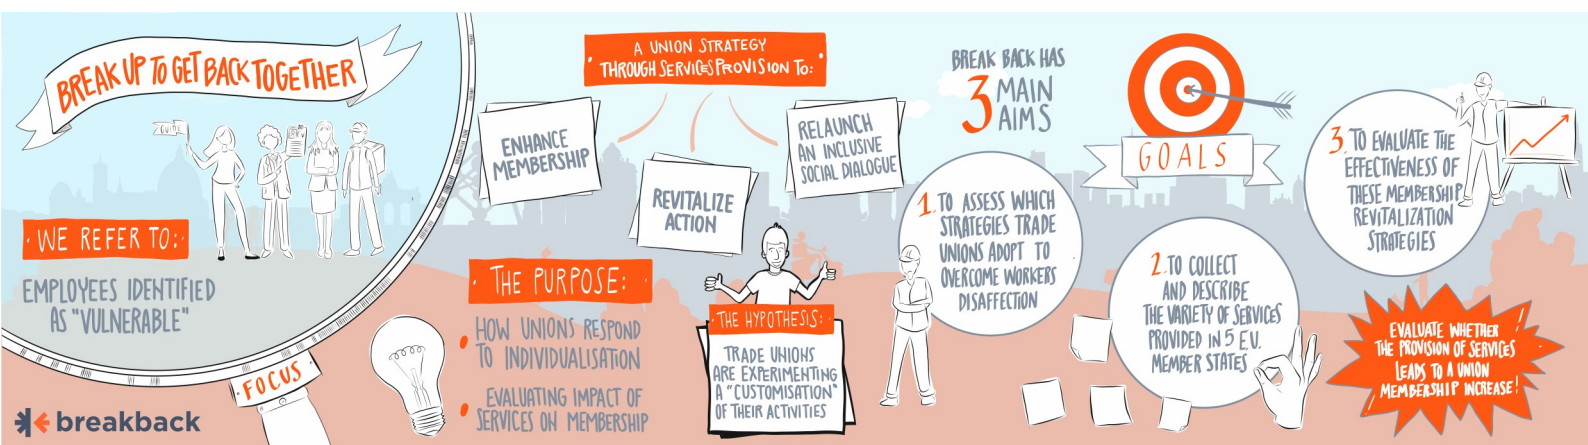 BREAK UP TO GET BACK TOGETHER
GUIDE
WE REFER TO:
EMPLOYEES IDENTIFIED
AS "VULNERABLE"
FOCUS
breakback
A UNION STRATEGY
THROUGH SERVICES PROVISION TO:
ENHANCE
MEMBERSHIP
REVITALIZE
ACTION
RELAUNCH
AN INCLUSIVE
SOCIAL DIALOGUE
THE PURPOSE:
HOW UNIONS RESPOND
TO INDIVIDUALISATION
EVALUATING IMPACT OF
SERVICES ON MEMBERSHIP
THE HYPOTHESIS:
TRADE UNIONS
ARE EXPERIMENTING
A "CUSTOMISATION"
OF THEIR ACTIVITIES
BREAK BACK HAS
3 MAIN
AIMS
GOALS
1. TO ASSESS WHICH
STRATEGIES TRADE
UNIONS ADOPT TO
OVERCOME WORKERS
DISAFFECTION
2. TO COLLECT
AND DESCRIBE
THE VARIETY OF SERVICES
PROVIDED IN 5 E.U.
MEMBER STATES
3. TO EVALUATE THE
EFFECTIVENESS OF
THESE MEMBERSHIP
REVITALIZATION
STRATEGIES
EVALUATE WHETHER
THE PROVISION OF SERVICES
LEADS TO A UNION
MEMBERSHIP INCREASE!